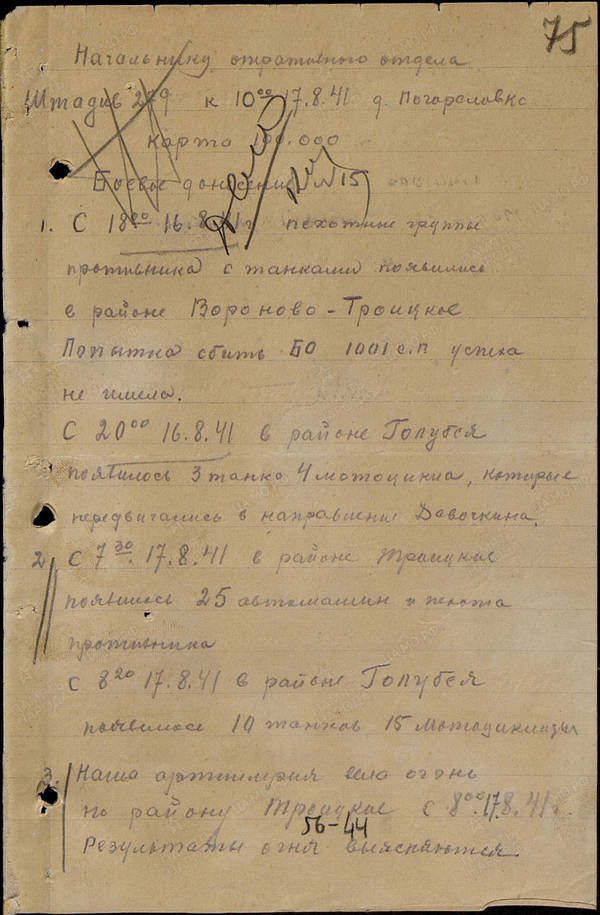 75
Начальнику опративного отдела
Штадив 279 к 10 00 17.8.41 д. Погореловка
карта 100.000
Боевое донесение №15
1. С 18 00 16.8.41 г пехотные группы
противника с танками появились
в районе Вороново-Троицкое
Попытка сбить БО 1001 с.п успеха
не имела.
С 20 00 16.8.41 в районе Голубея
появилось 3 танка 4 мотоцикла, которые
передвигались в направление Девочкина.
2 С 7 30. 17.8.41 в районе Троицкое
появилось 25 автомашин и пехота
противника
с 8 20 17.8.41 в районе Голубея
появилось 10 танков 15 мотоциклистов
3. Наша артилерия вела огонь
по району Троицкое с 8 00. 17.8.41.
56-44
Результаты огня выясняются